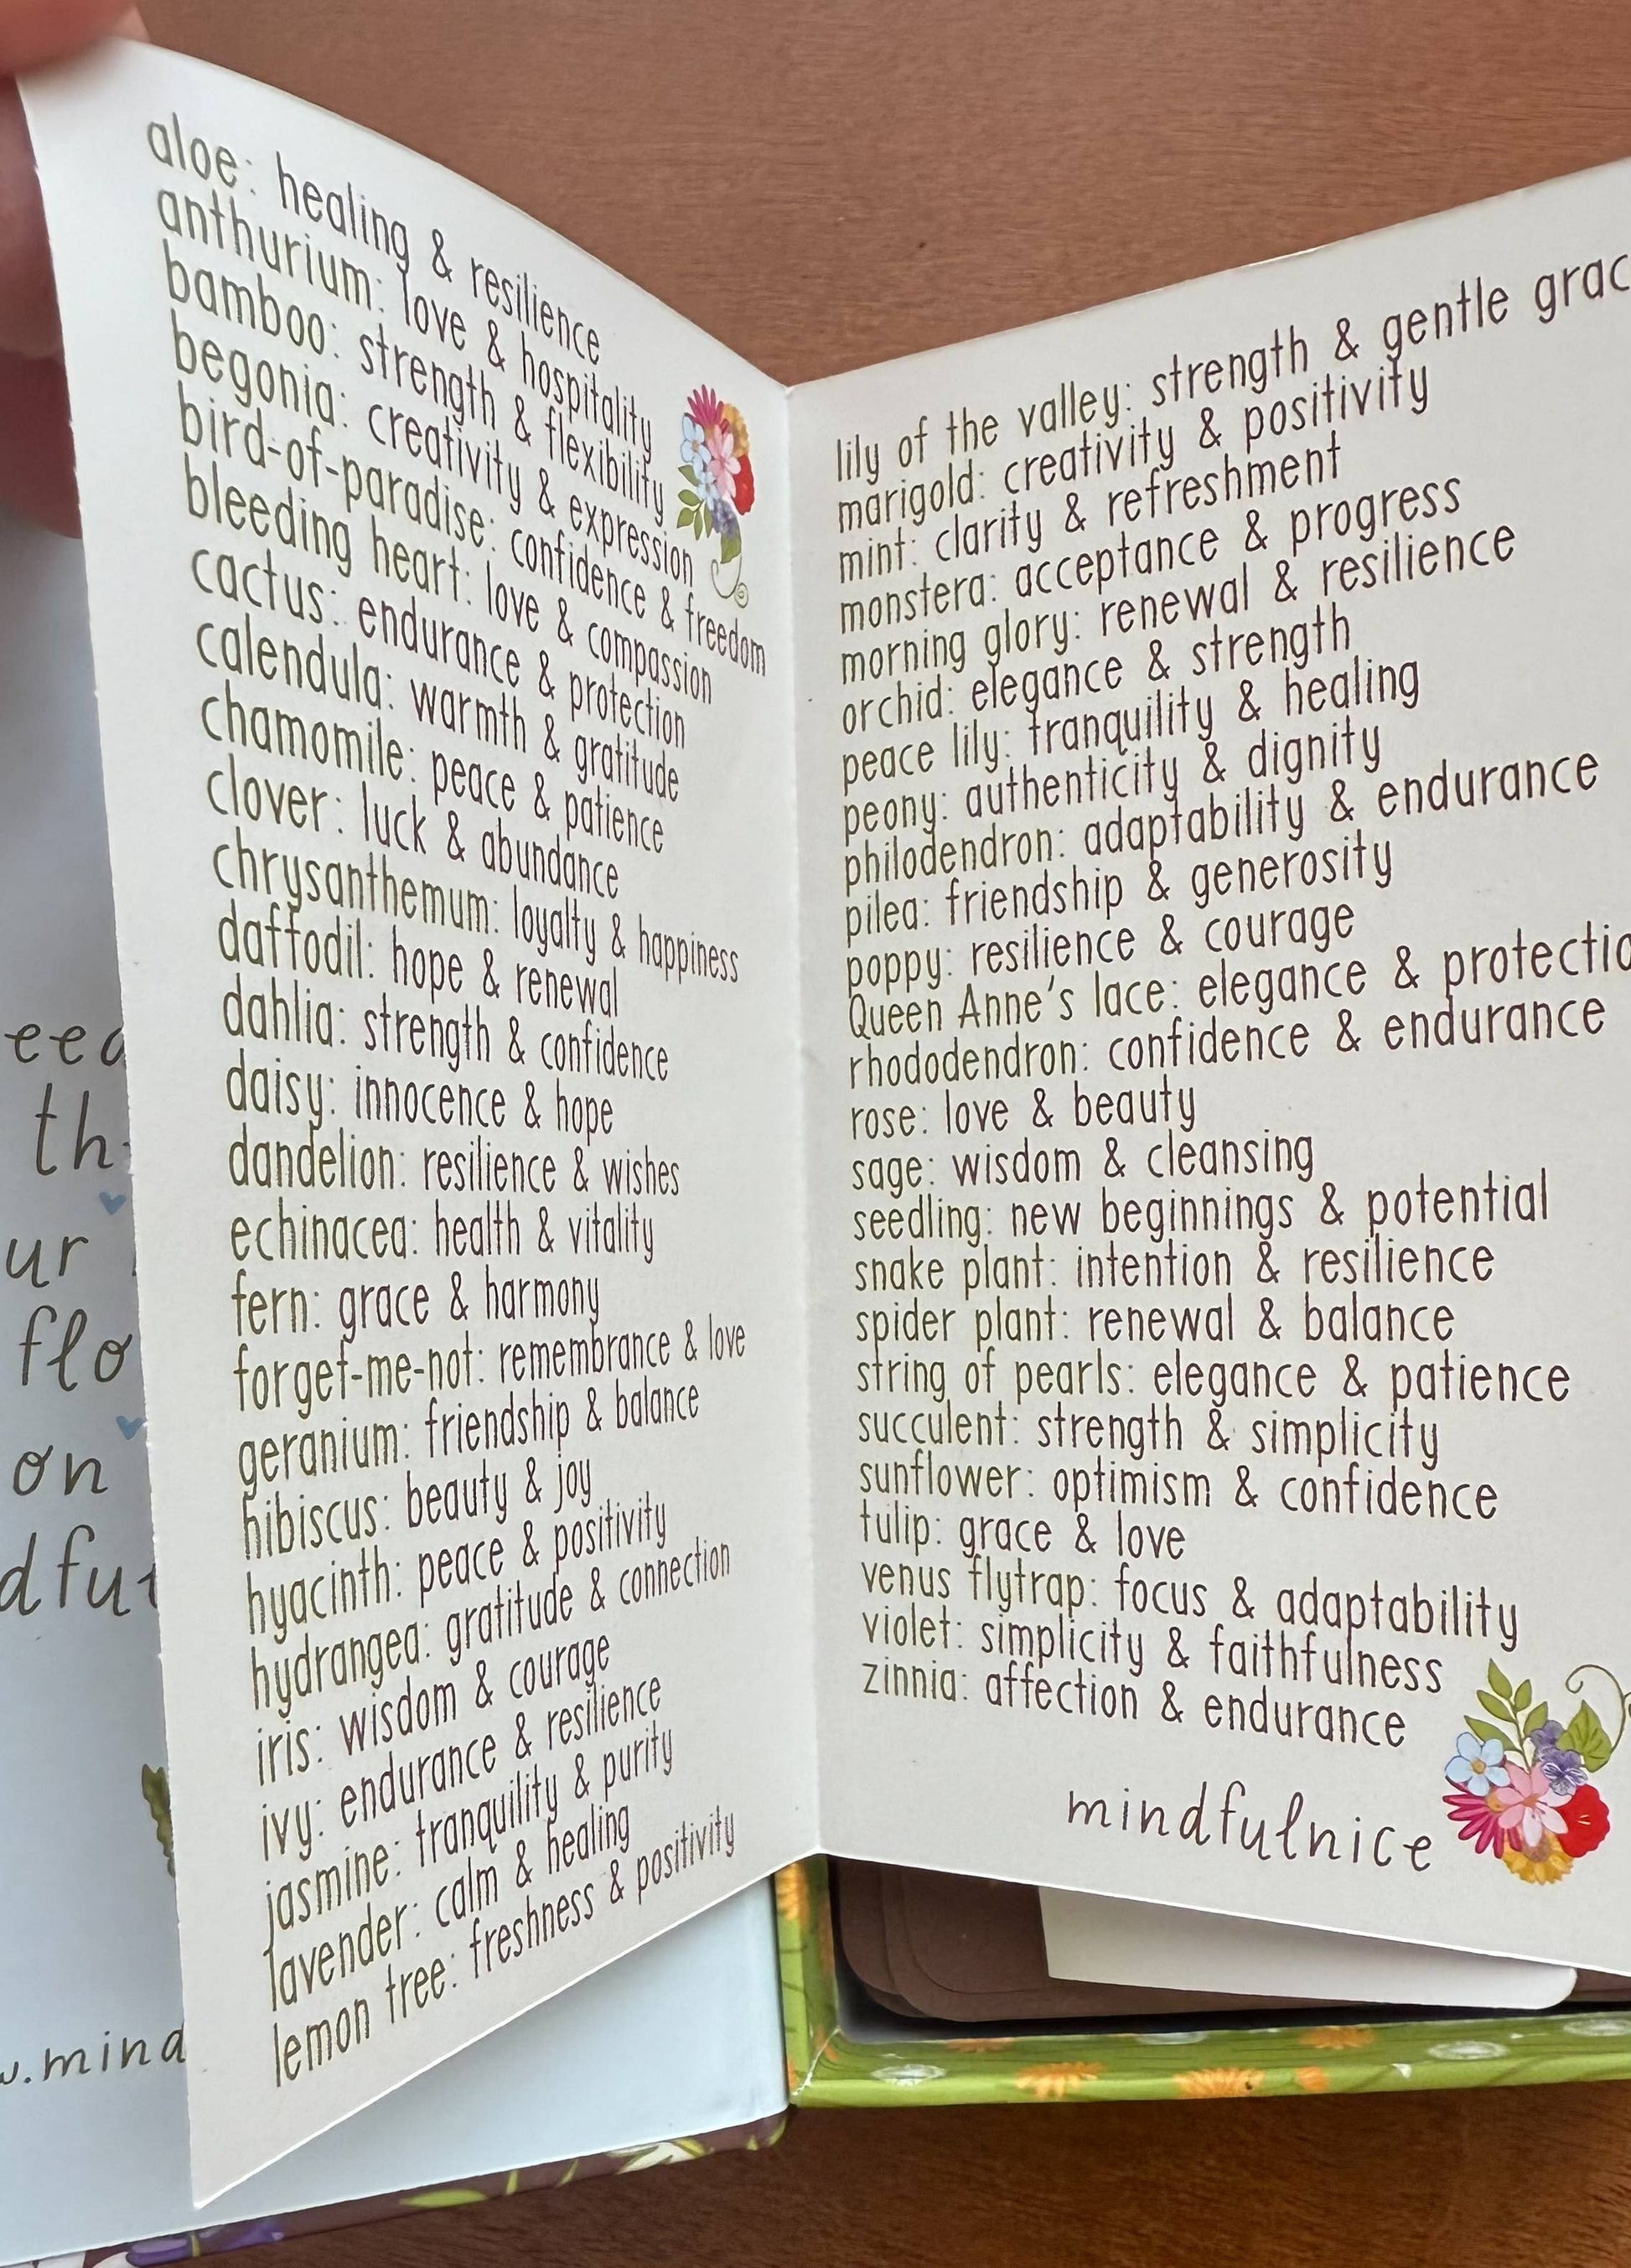 aloe: healing & resilience
anthurium: love & hospitality
bamboo: strength & flexibility
begonia: creativity & expression
bird-of-paradise: confidence & freedom
bleeding heart: love & compassion
cactus: endurance & protection
calendula: warmth & gratitude
chamomile: peace & patience
clover: luck & abundance
chrysanthemum: loyalty & happiness
daffodil: hope & renewal
dahlia: strength & confidence
daisy: innocence & hope
dandelion: resilience & wishes
echinacea: health & vitality
fern: grace & harmony
forget-me-not: remembrance & love
geranium: friendship & balance
hibiscus: beauty & joy
hyacinth: peace & positivity
hydrangea: gratitude & connection
iris: wisdom & courage
ivy: endurance & resilience
jasmine: tranquility & purity
lavender: calm & healing
lemon tree: freshness & positivity
lily of the valley: strength & gentle grac
marigold: creativity & positivity
mint: clarity & refreshment
monstera: acceptance & progress
morning glory: renewal & resilience
orchid: elegance & strength
peace lily: tranquility & healing
peony: authenticity & dignity
philodendron: adaptability & endurance
pilea: friendship & generosity
poppy: resilience & courage
Queen Anne's lace: elegance & protectio
rhododendron: confidence & endurance
rose: love & beauty
sage: wisdom & cleansing
seedling: new beginnings & potential
snake plant: intention & resilience
spider plant: renewal & balance
string of pearls: elegance & patience
succulent: strength & simplicity
sunflower: optimism & confidence
tulip: grace & love
venus flytrap: focus & adaptability
violet: simplicity & faithfulness
zinnia: affection & endurance
mindfulnice
ur
flo
on
.mind